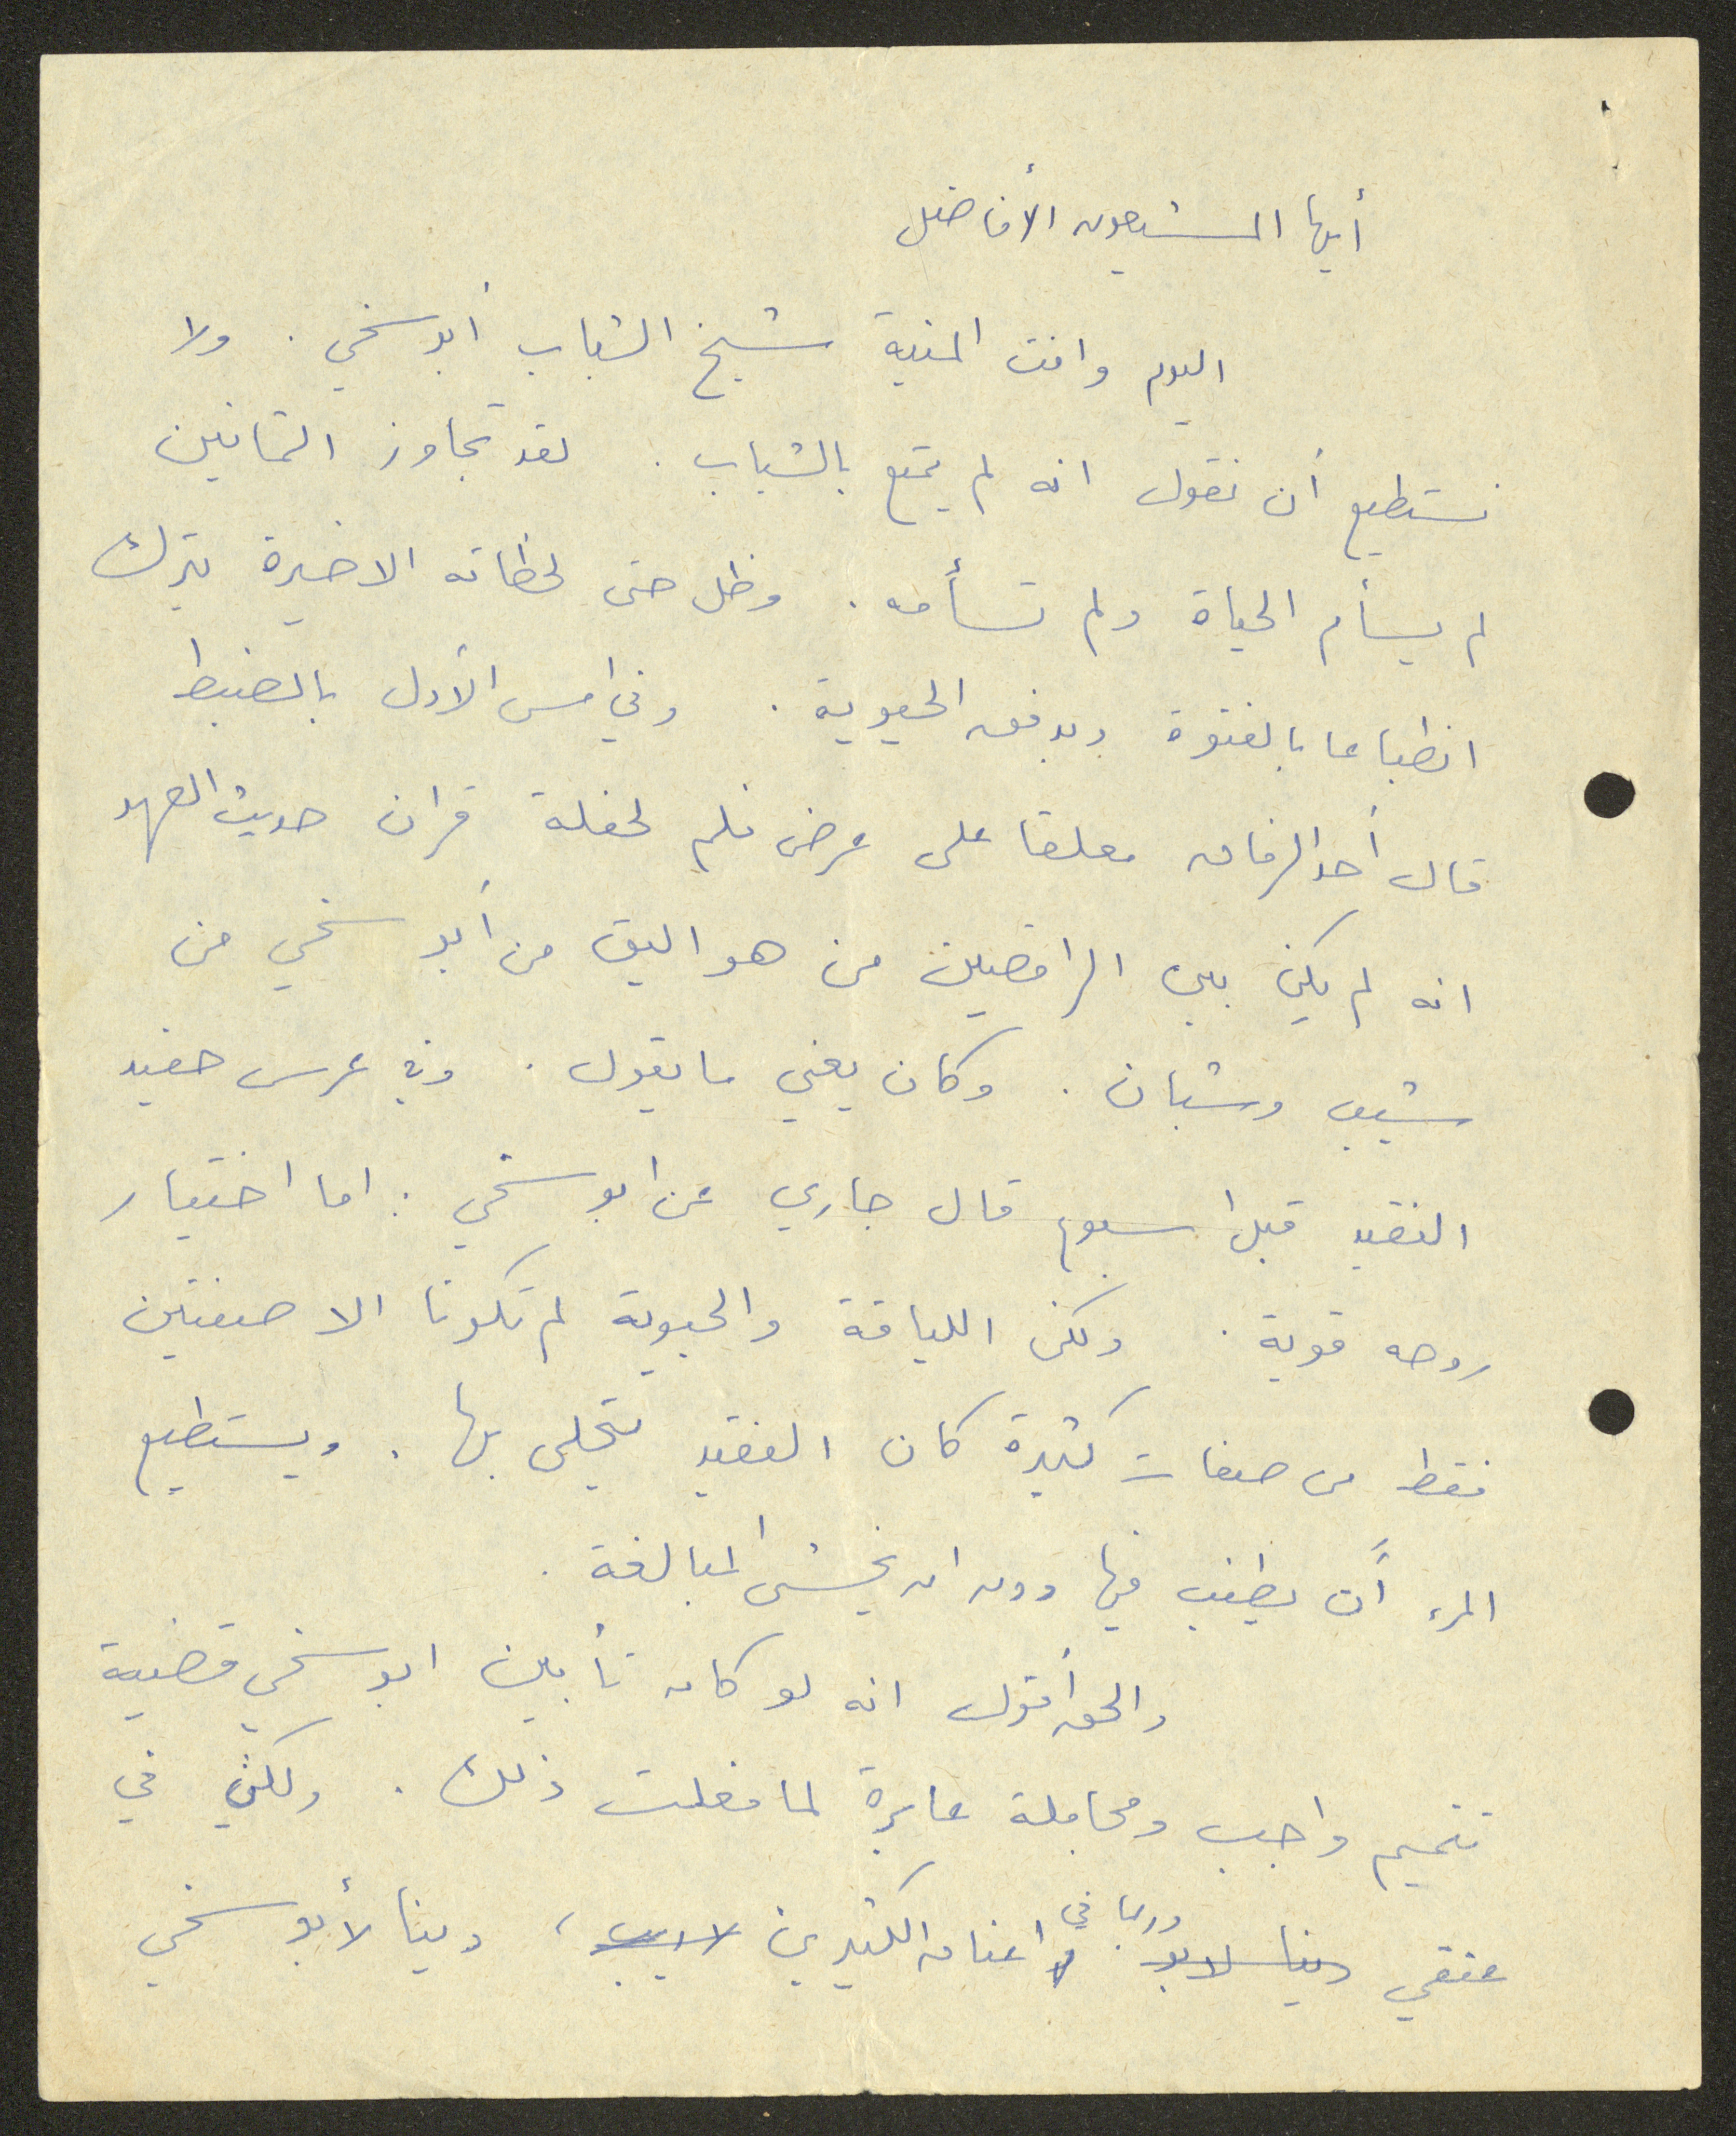 أيها المشيعون الأفاضل
اليوم وافت المنية شيخ الشباب أبو سخي . ولا
نستطيع أن نقول انه لم يتمتع بالشباب . لقد تجاوز الثمانين
لم يسأم الحياة ولم تسأمه . وظل حتى لحظاته الاخيرة يترك
انطباعا بالفتوة وبدفق الحيوية . وفي امس الأول بالضبط
قال أحد الرفاق معلقا على عرض فلم لحفلة قران حديث العهد
انه لم يكن بين الراقصين من هو اليق من أبو سخي من
شيب وشبان . وكان يعني ما يقول . وفي عرس حفيد
الفقيد قبل اسبوع قال جاري عن ابو سخي : اما اختيار
روحه قوية . ولكن اللياقة والحيوية لم تكونا الا صفتين
فقط من صفات كثيرة كان الفقيد يتحلى بها . ويستطيع
المرء أن يطنب فيها دون ان يخشى المبالغة .
والحق أقول انه لو كان تأبين ابو سخي قضية
تتميم واجب ومجاملة عابرة لما فعلت ذلك . ولكن في
عنقي دينا لابو وربما في اعناق الكثيرين ، دينا لأبو سخي